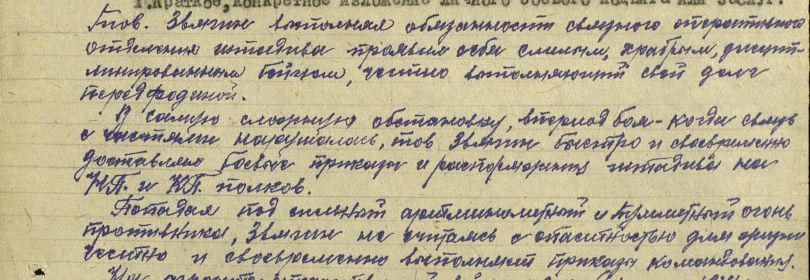 1. Краткое, конкретное изложение личного боевого подвига или заслуг.
Тов. Звягин выполняя обязанности связного оперативного
отделения штадива проявил себя смелым, храбрым, дисцип-
линированным бойцом, честно выполняющий свой долг
перед родиной.
В самую сложную обстановку, в период боя - когда связь
с частями нарушалась, тов Звягин быстро и своевременно
доставлял боевые приказы и распоряжения штадива на
НП. и КП. полков.
Попадая под сильный артминометный и пулеметный огонь
противника, Звягин не считаясь с опасностью для жизни
честно и своевременно выполнял приказы командования.